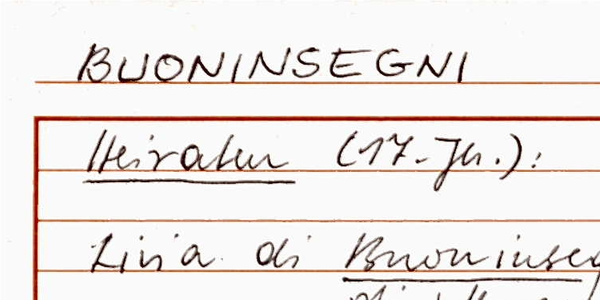 BUONINSEGNI
Heiraten (17. Jh.):
Livia di Buoninseg